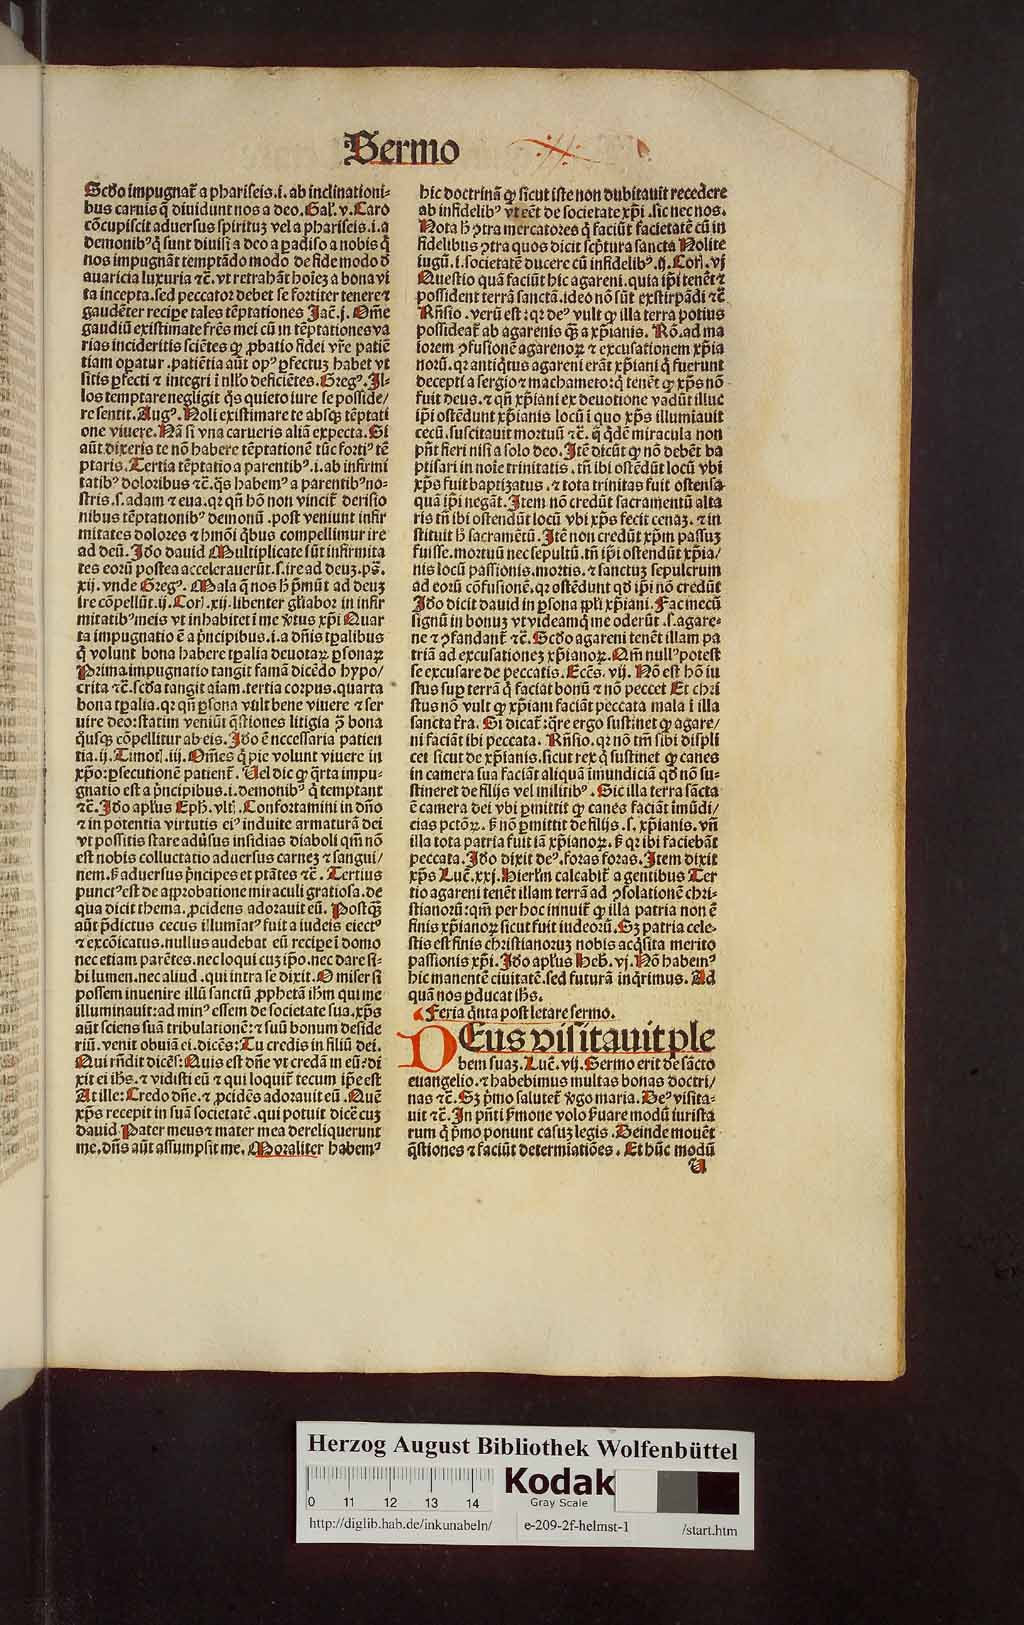 Sermo
Scđo impugnat᷑ a phariseis.i. ab inclinationi⸗
bus carnis q̃ diuidunt nos a deo. Gal̓. v. Caro
cõcupiscit aduersus spirituȝ vel a phariseis.i.a
demonibꝰ q̃ sunt diuisi a deo a padiso a nobis q̃
nos impugnãt temptãdo modo de fide modo đ
auaricia luxuria ⁊c̃. vt retrahãt hoĩeȝ a bona vi
ta incepta.sed peccator debet se fortiter tenere ⁊
gaudẽter recipe tales tẽptationes Iac̃.j. Om̃e
gaudiũ existimate fr̃es mei cũ in tẽptationes va
rias incideritis sciẽtes ꝙ ꝓbatio fidei vr̃e patiẽ
tiam oꝑatur .patiẽtia aũt opꝰ ꝑfectuȝ habet vt
sitis ꝑfecti ⁊ integri ĩ nll̓o deficiẽtes. Gregꝰ. Il⸗
los temptare negligit q̃s quieto iure se posside/
re sentit. Augꝰ. Noli existimare te absqꝫ tẽptati
one viuere. Nã si vna carueris aliã expecta. Si
aũt dixeris te nõ habere tẽptationẽ tũc fortiꝰ tẽ
ptaris. Tertia tẽptatio a parentibꝰ.i. ab infirmi
tatibꝰ doloribus ⁊c̃. q̃s habemꝰ a parentibꝰ no⸗
stris.s. adam ⁊ eua. qꝛ qñ hõ non vincit᷑ derisio
nibus tẽptationibꝰ demonũ .post veniunt infir
mitates dolores ⁊ hmõi q̃bus compellimur ire
ad deũ. Iđo dauid Multiplicate sũt infirmita
tes eorũ postea accelerauerũt.s. ire ad deuȝ.ps̃.
xij. vnde Gregꝰ. Mala q̃ nos h̓ p̃mũt ad deuȝ
ire cõpellũt. ij. Cor̓. xij. libenter gl̓iabor in infir
mitatibꝰ meis vt inhabitet ĩ me v̓tus xp̃i Quar
ta impugnatio ẽ a p̃ncipibus.i.a dñis tꝑalibus
q̃ volunt bona habere tꝑalia deuotaꝝ ꝑsonaꝝ
Prima impugnatio tangit famã dicẽdo hypo/
crita ⁊c̃. scđa tangit aĩam .tertia corpus. quarta
bona tꝑalia. qꝛ qñ ꝑsona vult bene viuere ⁊ ser
uire deo: statim veniũt q̃stiones litigia ꝓ bona
q̃usqꝫ cõpellitur ab eis. Iđo ẽ necessaria patien
tia. ij. Timot̓. iij. Om̃es q̃ pie volunt viuere in
xp̃o: ꝑsecutionẽ patient᷑. Uel dic ꝙ q̃rta impu⸗
gnatio est a p̃ncipibus.i. demonibꝰ q̃ temptant
⁊c̃. Iđo apl̓us Eph̓. vlt̓. Confortamini in dño
⁊ in potentia virtutis eiꝰ induite armaturã dei
vt possitis stare adũsus insidias diaboli qm̃ nõ
est nobis colluctatio aduersus carneȝ ⁊ sangui/
nem. s̓ aduersus p̃ncipes et ptãtes ⁊c̃. Tertius
punctꝰ est de approbatione miraculi gratiosa. de
qua dicit thema. ꝓcidens adorauit eũ. Postqꝫ̃
aũt p̃dictus cecus illumiatꝰ fuit a iudeis eiectꝰ
⁊ excõicatus. nullus audebat eũ recipe ĩ domo
nec etiam parẽtes. nec loqui cuȝ ip̃o. nec dare si⸗
bi lumen. nec aliud . qui intra se dixit. O miser si
possem inuenire illũ sanctũ ꝓphetã ih̃m qui me
illuminauit: ad minꝰ essem de societate sua. xp̃s
aũt sciens suã tribulationẽ: ⁊ suũ bonum deside
riũ. venit obuiã ei. dicẽs: Tu credis in filiũ dei.
Qui rñdit dicẽs: Quis est dñe vt credã in eũ? di
xit ei ih̃s. ⁊ vidisti eũ ⁊ qui loquit᷑ tecum ip̃e est
At ille: Credo dñe. ⁊ ꝓcidẽs adorauit eũ. Quẽ
xp̃s recepit in suã societatẽ . qui potuit dicẽ cuȝ
dauid. Pater meus ⁊ mater mea dereliquerunt
me. dñs aũt assumpsit me. Moraliter habemꝰ
hic doctrinã ꝙ sicut iste non dubitauit recedere
ab infidelibꝰ vt eẽt de societate xp̃i .sic nec nos.
Nota h̓ ↄtra mercatores q̃ faciũt facietatẽ cũ in
fidelibus ↄtra quos dicit sc̓ptura sancta Nolite
iugũ.i. societatẽ ducere cũ infidelibꝰ. ij. Cor̓. vj
Questio quã faciũt hic agareni. quia ip̃i tenẽt ⁊
possident terrã sanctã. ideo nõ sũt exstirpãdi ⁊c̃
Rñsio . verũ est: qꝛ deꝰ vult ꝙ illa terra potius
possideat᷑ ab agarenis qꝫ̃ a xp̃ianis. Rõ. ad ma
iorem ↄfusionẽ agarenoꝝ ⁊ excusationem xp̃ia
norũ. qꝛ antiq̃tus agareni erãt xp̃iani q̃ fuerunt
decepti a sergio ⁊ machameto: q̃ tenẽt ꝙ xp̃s nõ
fuit deus. ⁊ qñ xp̃iani ex deuotione vadũt illuc
ip̃i ostẽdunt xp̃ianis locũ ĩ quo xp̃s illumiauit
cecũ. suscitauit mortuũ ⁊c̃. q̃ q̃dẽ miracula non
pñt fieri nisi a solo deo. Itẽ dicũt ꝙ nõ debẽt ba
ptisari in noĩe trinitatis . tñ ibi ostẽdũt locũ vbi
xp̃s fuit baptizatus. ⁊ tota trinitas fuit ostensa
quã ip̃i negãt. Item nõ credũt sacramentũ alta
ris tñ ibi ostendũt locũ vbi xp̃s fecit cenaȝ. ⁊ in
stituit h̓ sacramẽtũ. Itẽ non credũt xp̃m passuȝ
fuisse. mortuũ nec sepultũ. tñ ip̃i ostendũt xp̃ia/
nis locũ passionis. mortis. ⁊ sanctuȝ sepulcrum
ad eorũ cõfusionẽ. qꝛ ostẽdunt qđ ip̃i nõ credũt
Iđo dicit dauid in ꝑsona ppl̓i xp̃iani. Fac mecũ
signũ in bonuȝ vt videamq̃ me oderũt .s. agare⸗
ne ⁊ ↄfandant᷑ ⁊c̃. Scđo agareni tenẽt illam pa
triã ad excusationeȝ xp̃ianoꝝ. Qm̃ nullꝰ potest
se excusare de peccatis. Ecc̃s. vij. Nõ est hõ iu
stus suꝑ terrã q̃ faciat bonũ ⁊ nõ peccet Et chri
stus nõ vult ꝙ xp̃iani faciãt peccata mala ĩ illa
sancta t̓ra. Si dicat᷑: q̃re ergo sustinet ꝙ agare/
ni faciãt ibi peccata. Rñsio. qꝛ nõ tm̃ sibi displi
cet sicut de xp̃ianis. sicut rex q̃ sustinet ꝙ canes
in camera sua faciãt aliquã ĩmundiciã qđ nõ su⸗
stineret de filijs vel militibꝰ. Sic illa terra sãcta
ẽ camera dei vbi ꝑmittit ꝙ canes faciãt ĩmũdi/
cias pctõꝝ. s̓ nõ ꝑmittit de filijs .s. xp̃ianis. vñ
illa tota patria fuit iã xp̃ianoꝝ. s̓ qꝛ ibi faciebãt
peccata. Iđo dixit deꝰ. foras foras. Item dixit
xp̃s Luc̃. xxj. Hierl̓m calcabit᷑ a gentibus Ter
tio agareni tenẽt illam terrã ad ↄsolationẽ chri⸗
stianorũ: qm̃ per hoc innuit᷑ ꝙ illa patria non ẽ
finis xp̃ianoꝝ sicut fuit iudeorũ. Sȝ patria cele⸗
stis est finis christianoruȝ nobis acq̃sita merito
passionis xp̃i. Iđo apl̓us Heb̓. vj. Nõ habemꝰ
hic manentẽ ciuitatẽ. sed futurã inq̃rimus. Ad
quã nos ꝑducat ih̃s.
Feria q̃nta post letare sermo.
DEus visitauit ple
bem suaȝ. Luc̃. vij. Sermo erit de sãcto
euangelio. ⁊ habebimus multas bonas doctri/
nas ⁊c̃. Sȝ p̓mo salutet᷑ v̓go maria. Deꝰ visita⸗
uit ⁊c̃. In pñti s̓mone volo s̓uare modũ iurista
rum q̃ p̓mo ponunt casuȝ legis. Deinde mouẽt
q̃stiones ⁊ faciũt determiatiões. Et hũc modũ
U
Herzog August Bibliothek Wolfenbüttel
Kodak
Gray Scale
0 11 12 13 14
http://diglib.hab.de/inkunabeln/ e-209-2f-helmst-1 /start.htm